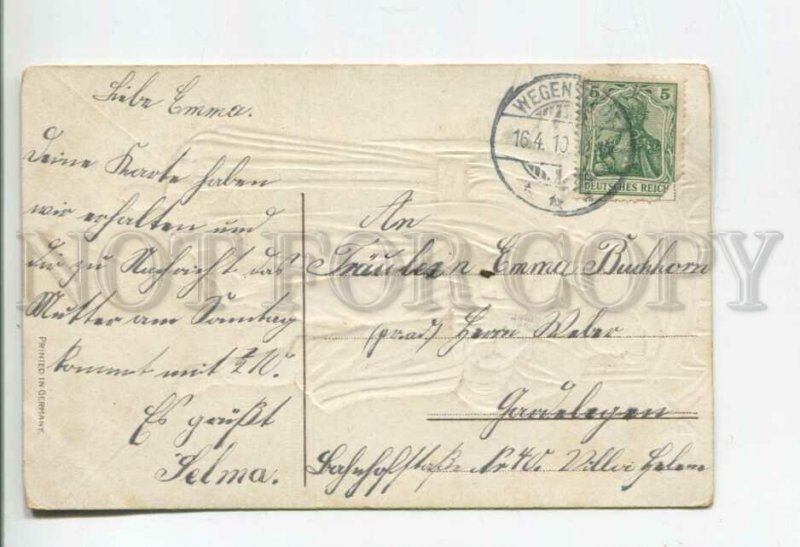 Liebe Emma.
Deine Karte haben
wir erhalten und
dir zu Nachricht das
Mutter am Sonntag
kommt mit
Es grüßt
Selma.
An
Fräulein Emma Buchhorn
Herrn Weber
Gardelegen
Bahnhofstraße Nr 40. Villa Helene
WEGENS
16.4.10
5 5
DEUTSCHES REICH
PRINTED IN GERMANY.
NOT FOR COPY